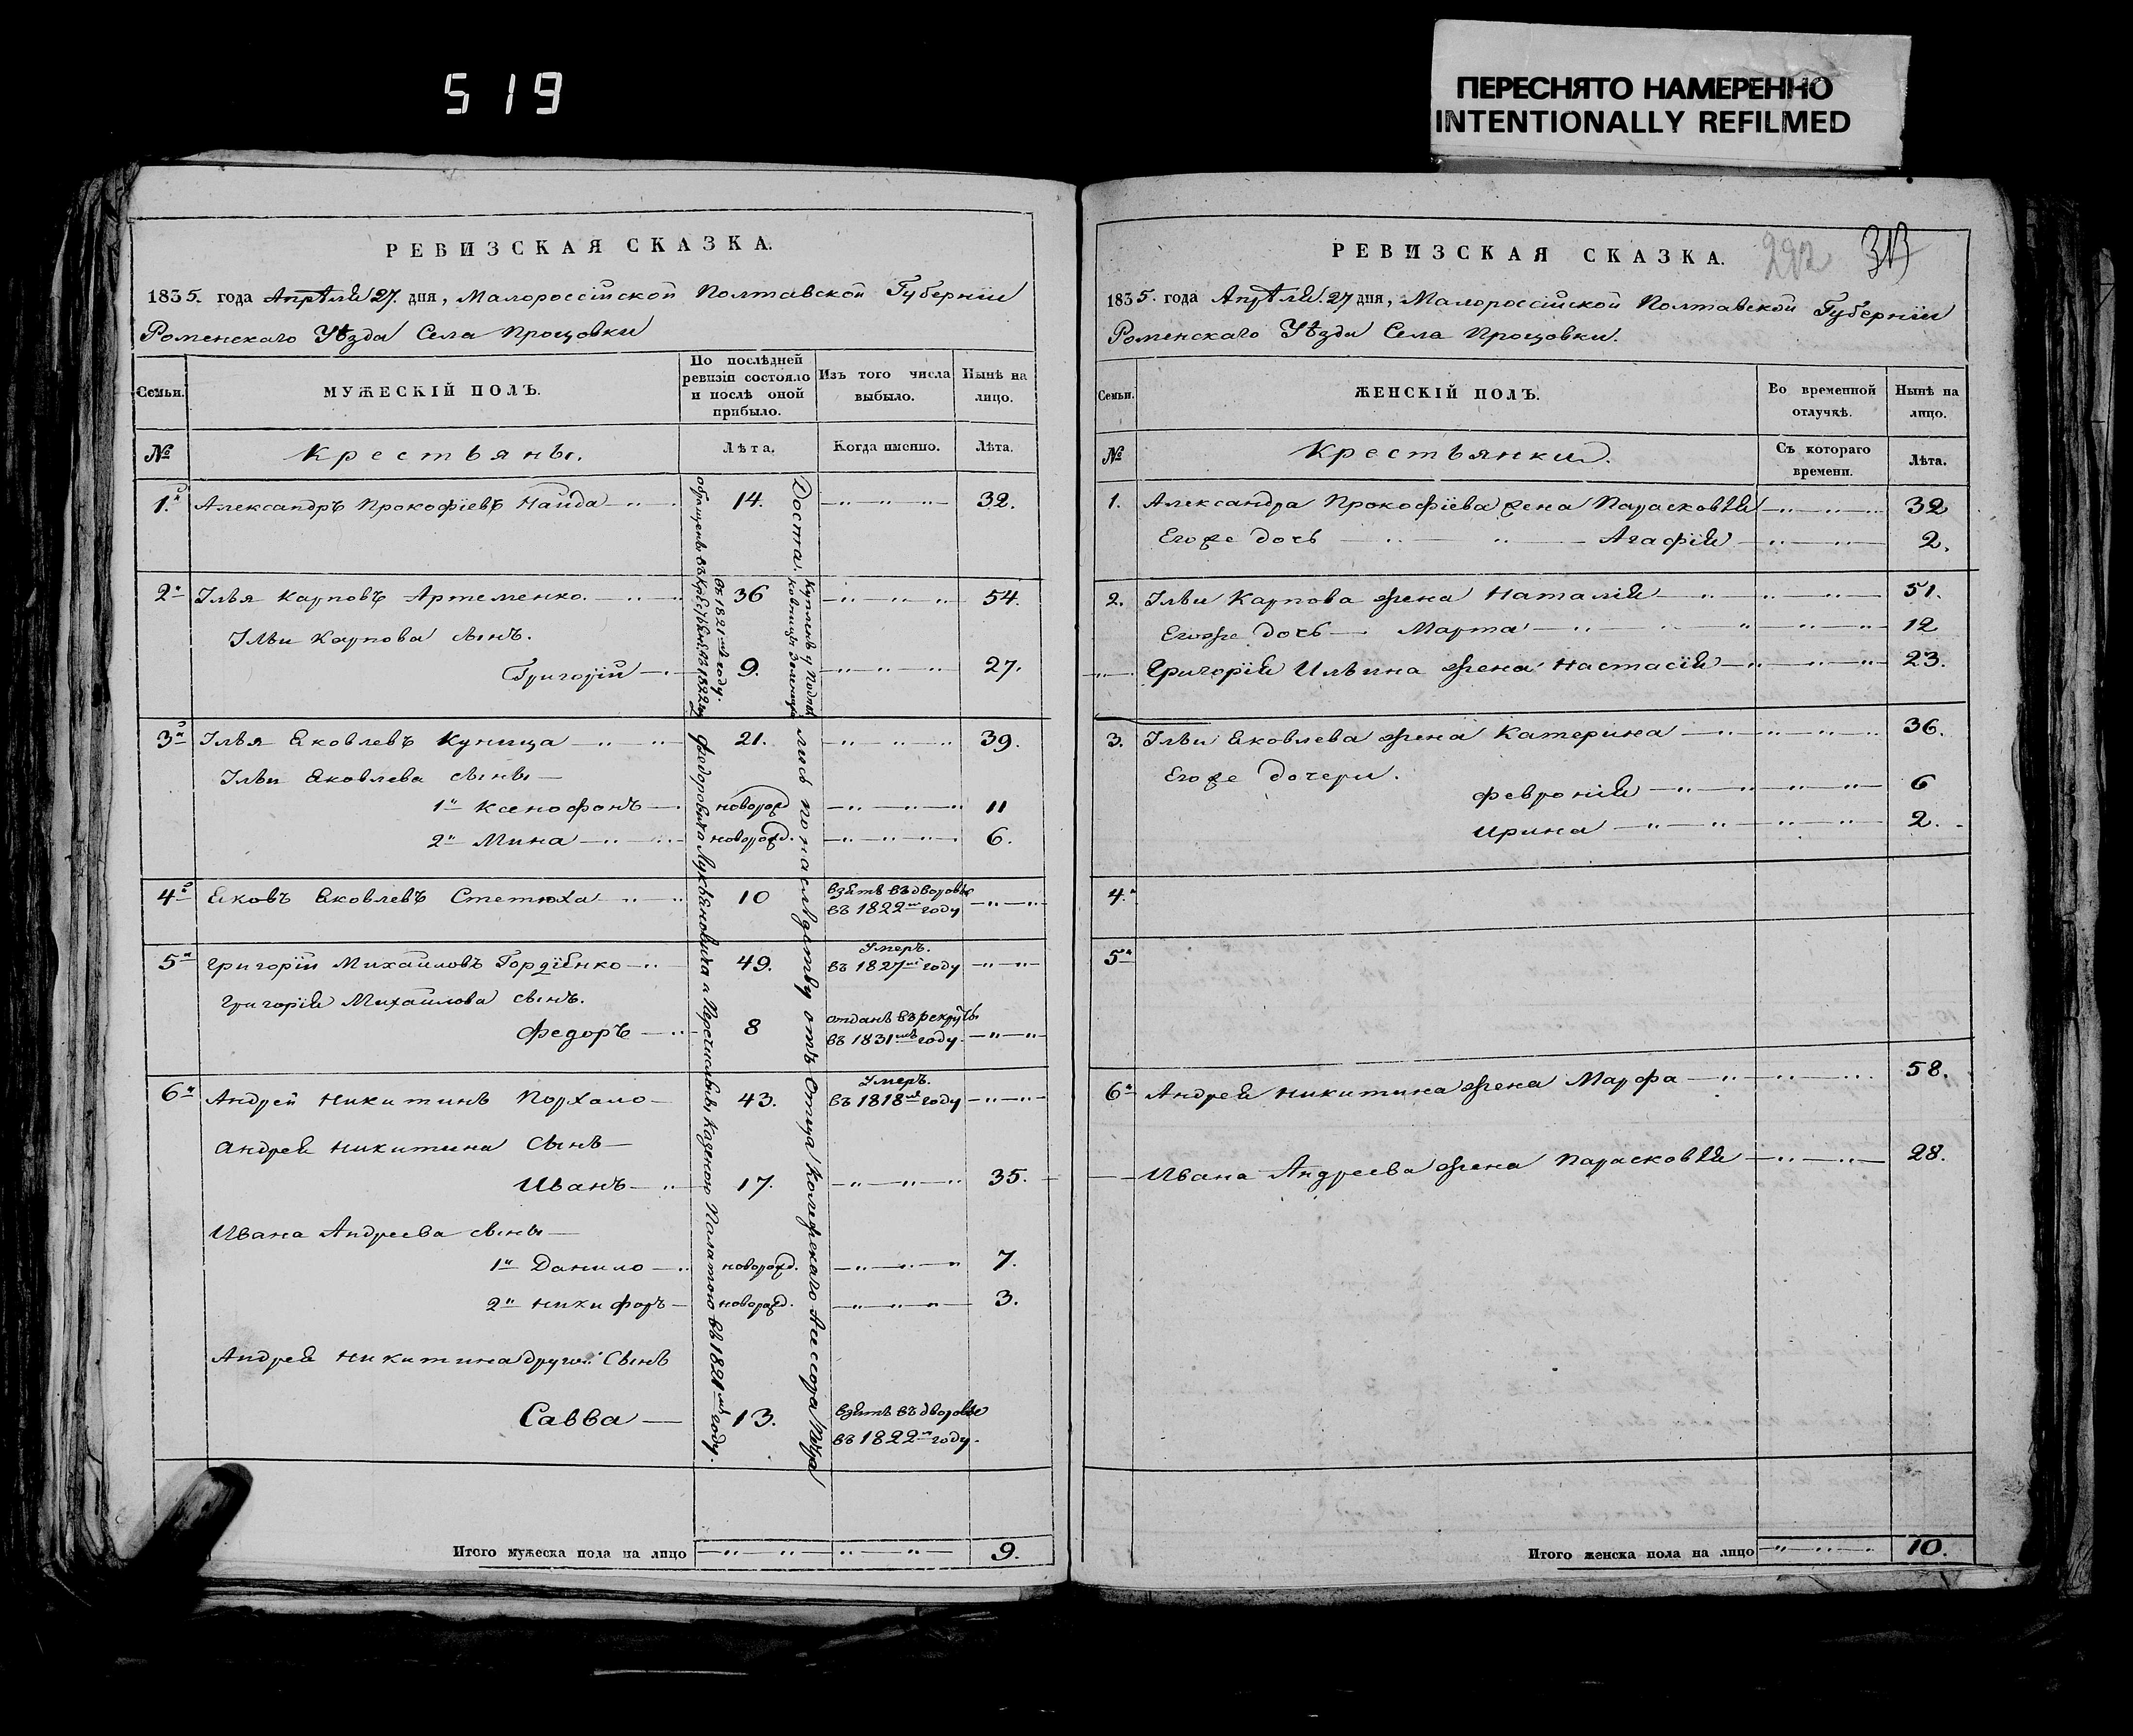 519
ПЕРЕСНЯТО НАМЕРЕННО
INTENTIONALLY REFILMED
РЕВИЗСКАЯ СКАЗКА.
1835. года Апрѣля 27. дня, Малороссійской Полтавской Губерніи
Роменскаго Уѣзда Села Процовки
Семьи.
МУЖЕСКІЙ ПОЛЪ.
По послѣдней ревизіи состояло и послѣ оной прибыло.
Изъ того числа выбыло.
Нынѣ на лицо.
№
Крестьяны.
Лѣта.
Когда именно.
Лѣта.
1.й Александръ Прокофіевъ Найда 14. 32.
2й Ілья Карповъ Артеменко. 36 54.
Ільи Карпова сынъ.
Григорій 9. 27.
3й Ілья Яковлевъ Куница 21. 39.
Ільи Яковлева сыны
1й Ксенофонъ новорожд 11
2й Мина новорожд. 6.
4й Яковъ Яковлевъ Стетюха 10 взятъ въ дворовые въ 1822м году
5й Григорій Михайловъ Гордіенко 49. Умеръ. въ 1827м году
Григорія Михайлова сынъ.
Федоръ 8 отданъ въ рекруты въ 1831мъ году.
6й Андрей Никитинъ Порхало 43. Умеръ. въ 1818мъ году
Андрея Никитина Сынъ
Иванъ 17. 35.
Ивана Андреева сыны
1й Данило новорожд. 7.
2й Никифоръ новорожд. 3.
Андрея Никитина другій Сынъ
Савва 13. взятъ въ дворовые въ 1822м году.
Достались по наслѣдству отъ Отца Колежскаго Ассесора
Федоровича Лукьяновича а Перечисленъ Казеною Палатою въ 1821мъ году.
въ 1821мъ году.
Итого мужеска пола на лицо 9.
РЕВИЗСКАЯ СКАЗКА.
292 313
1835. года Апрѣля. 27 дня, Малороссійской Полтавской Губерніи
Роменскаго Уѣзда Села Процовки.
Семьи.
ЖЕНСКІЙ ПОЛЪ.
Во временной отлучкѣ.
Нынѣ на лицо.
№
Крестьянки.
Съ котораго времени.
Лѣта.
1. Александра Прокофіева жена Парасковѣя 32
Его же дочь Агафія 2.
2. Ільи Карпова жена Наталія 51.
Его же дочь Марта 12
Григорія Ильина жена Настасія 23.
3. Ільи Яковлева жена Катерина 36.
Его же дочери.
Февронія 6
Ирина 2.
4.
5й
6й Андрея Никитина жена Марфа 58.
Ивана Андреева жена Парасковѣя 28.
Итого женска пола на лицо 10.